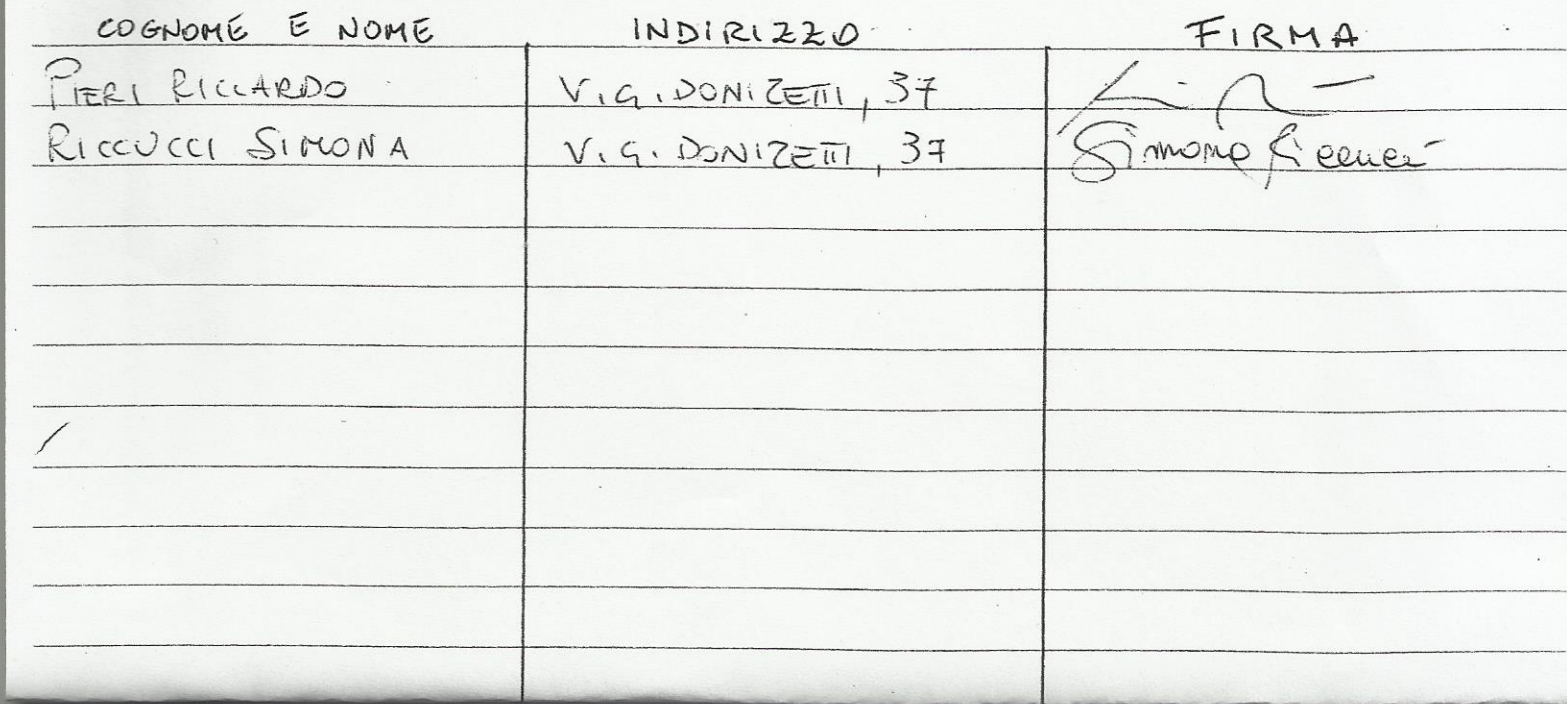 COGNOME E NOME INDIRIZZO FIRMA
PIERI RICCARDO V.G. DONIZETTI, 37
RICCUCCI SIMONA V.G. DONIZETTI, 37 Simona Riccucci